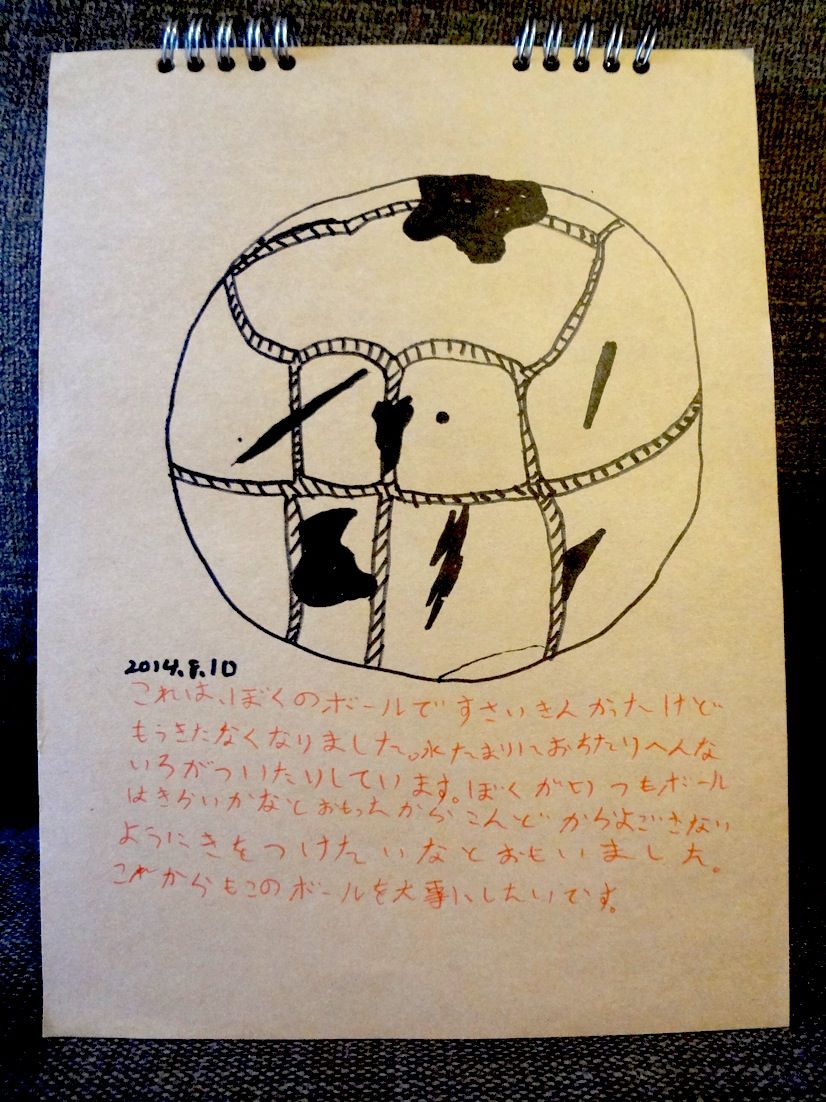 2014.8.10
これは、ぼくのボールですさいきんかったけど
もうきたなくなりました。水たまりにおちたりへんな
いろがついたりしています。ぼくがいつもボール
はきらいかなとおもったからこんどからよごさない
ようにきをつけたいなとおもいました。
これからもこのボールを大事にしたいです。